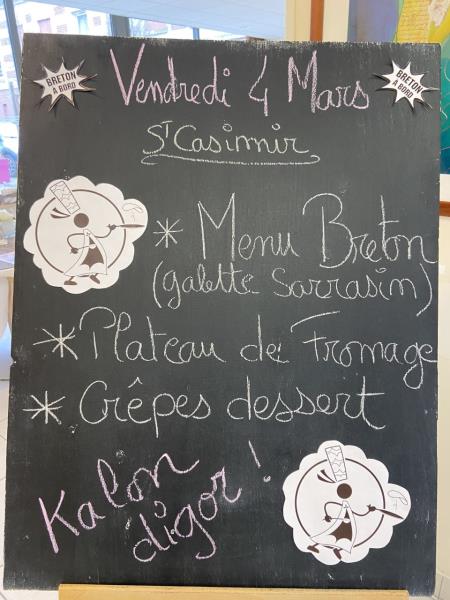 Vendredi 4 Mars
BRETON
A BORD
BRETON
A BORD
St Casimir
* Menu Breton
(galette Sarrasin)
* Plateau de Fromage
* Crêpes dessert
Kalon
digor !